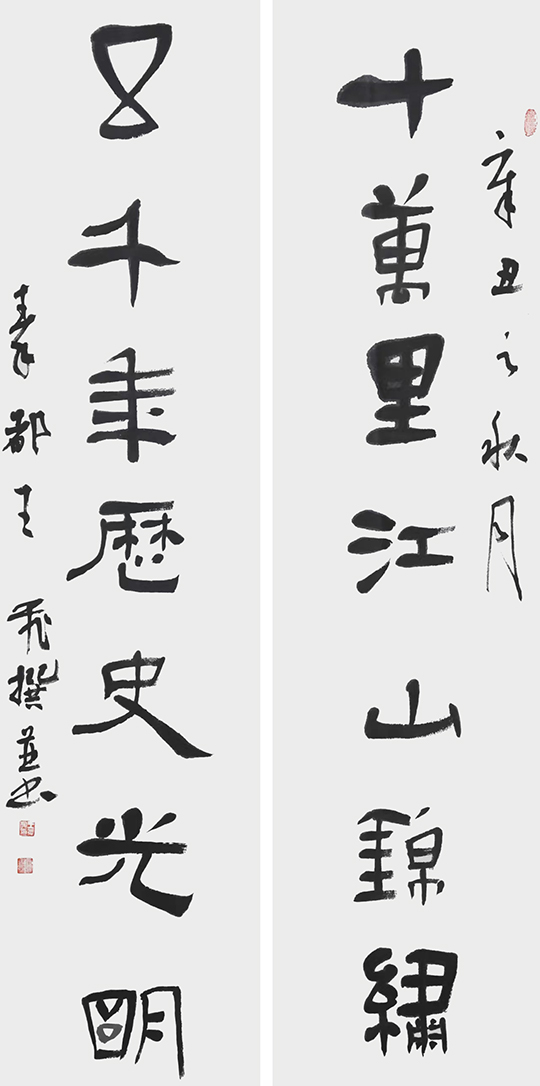 辛丑之秋月
十萬里江山錦繡
五千年歷史光明
秦都王飛撰並书